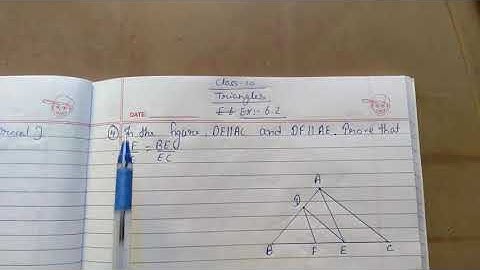 Class-10
Triangles
Ex:- 6.2
DATE:
(4) In the figure, DE||AC and DF||AE. Prove that
E = BE
EC
A
D
B F E C